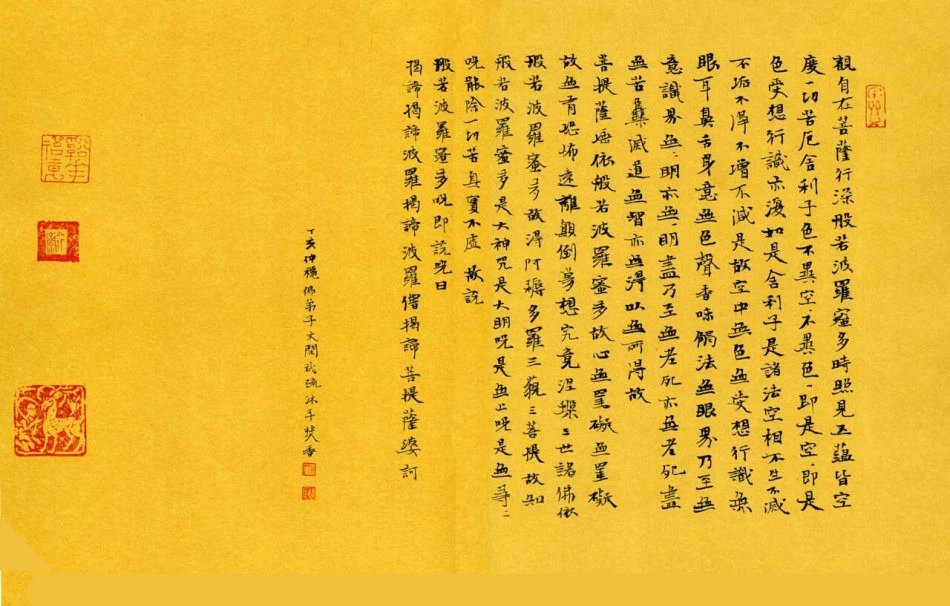 觀自在菩薩行深般若波羅蜜多時照見五蘊皆空
度一切苦厄舍利子色不異空、不異色、即是空、即是
色受想行識亦復如是舍利子是諸法空相不生不滅
不垢不淨不增不減是故空中無色無受想行識無
眼耳鼻舌身意無色聲香味觸法無眼界乃至無
意識界無、明亦無、明盡乃至無老死亦無老死盡
無苦集滅道無智亦無得以無所得故
菩提薩埵依般若波羅蜜多故心無罣礙無罣礙
故無有恐怖遠離顛倒夢想究竟涅槃三世諸佛依
般若波羅蜜多故得阿耨多羅三藐三菩提故知
般若波羅蜜多是大神咒是大明呪是無上呪是無等、
呪能除一切苦真實不虛故說
般若波羅蜜多呪即說呪曰
揭諦揭諦波羅揭諦波羅僧揭諦菩提薩婆訶
丁亥仲穐佛弟子文閣沐手焚香